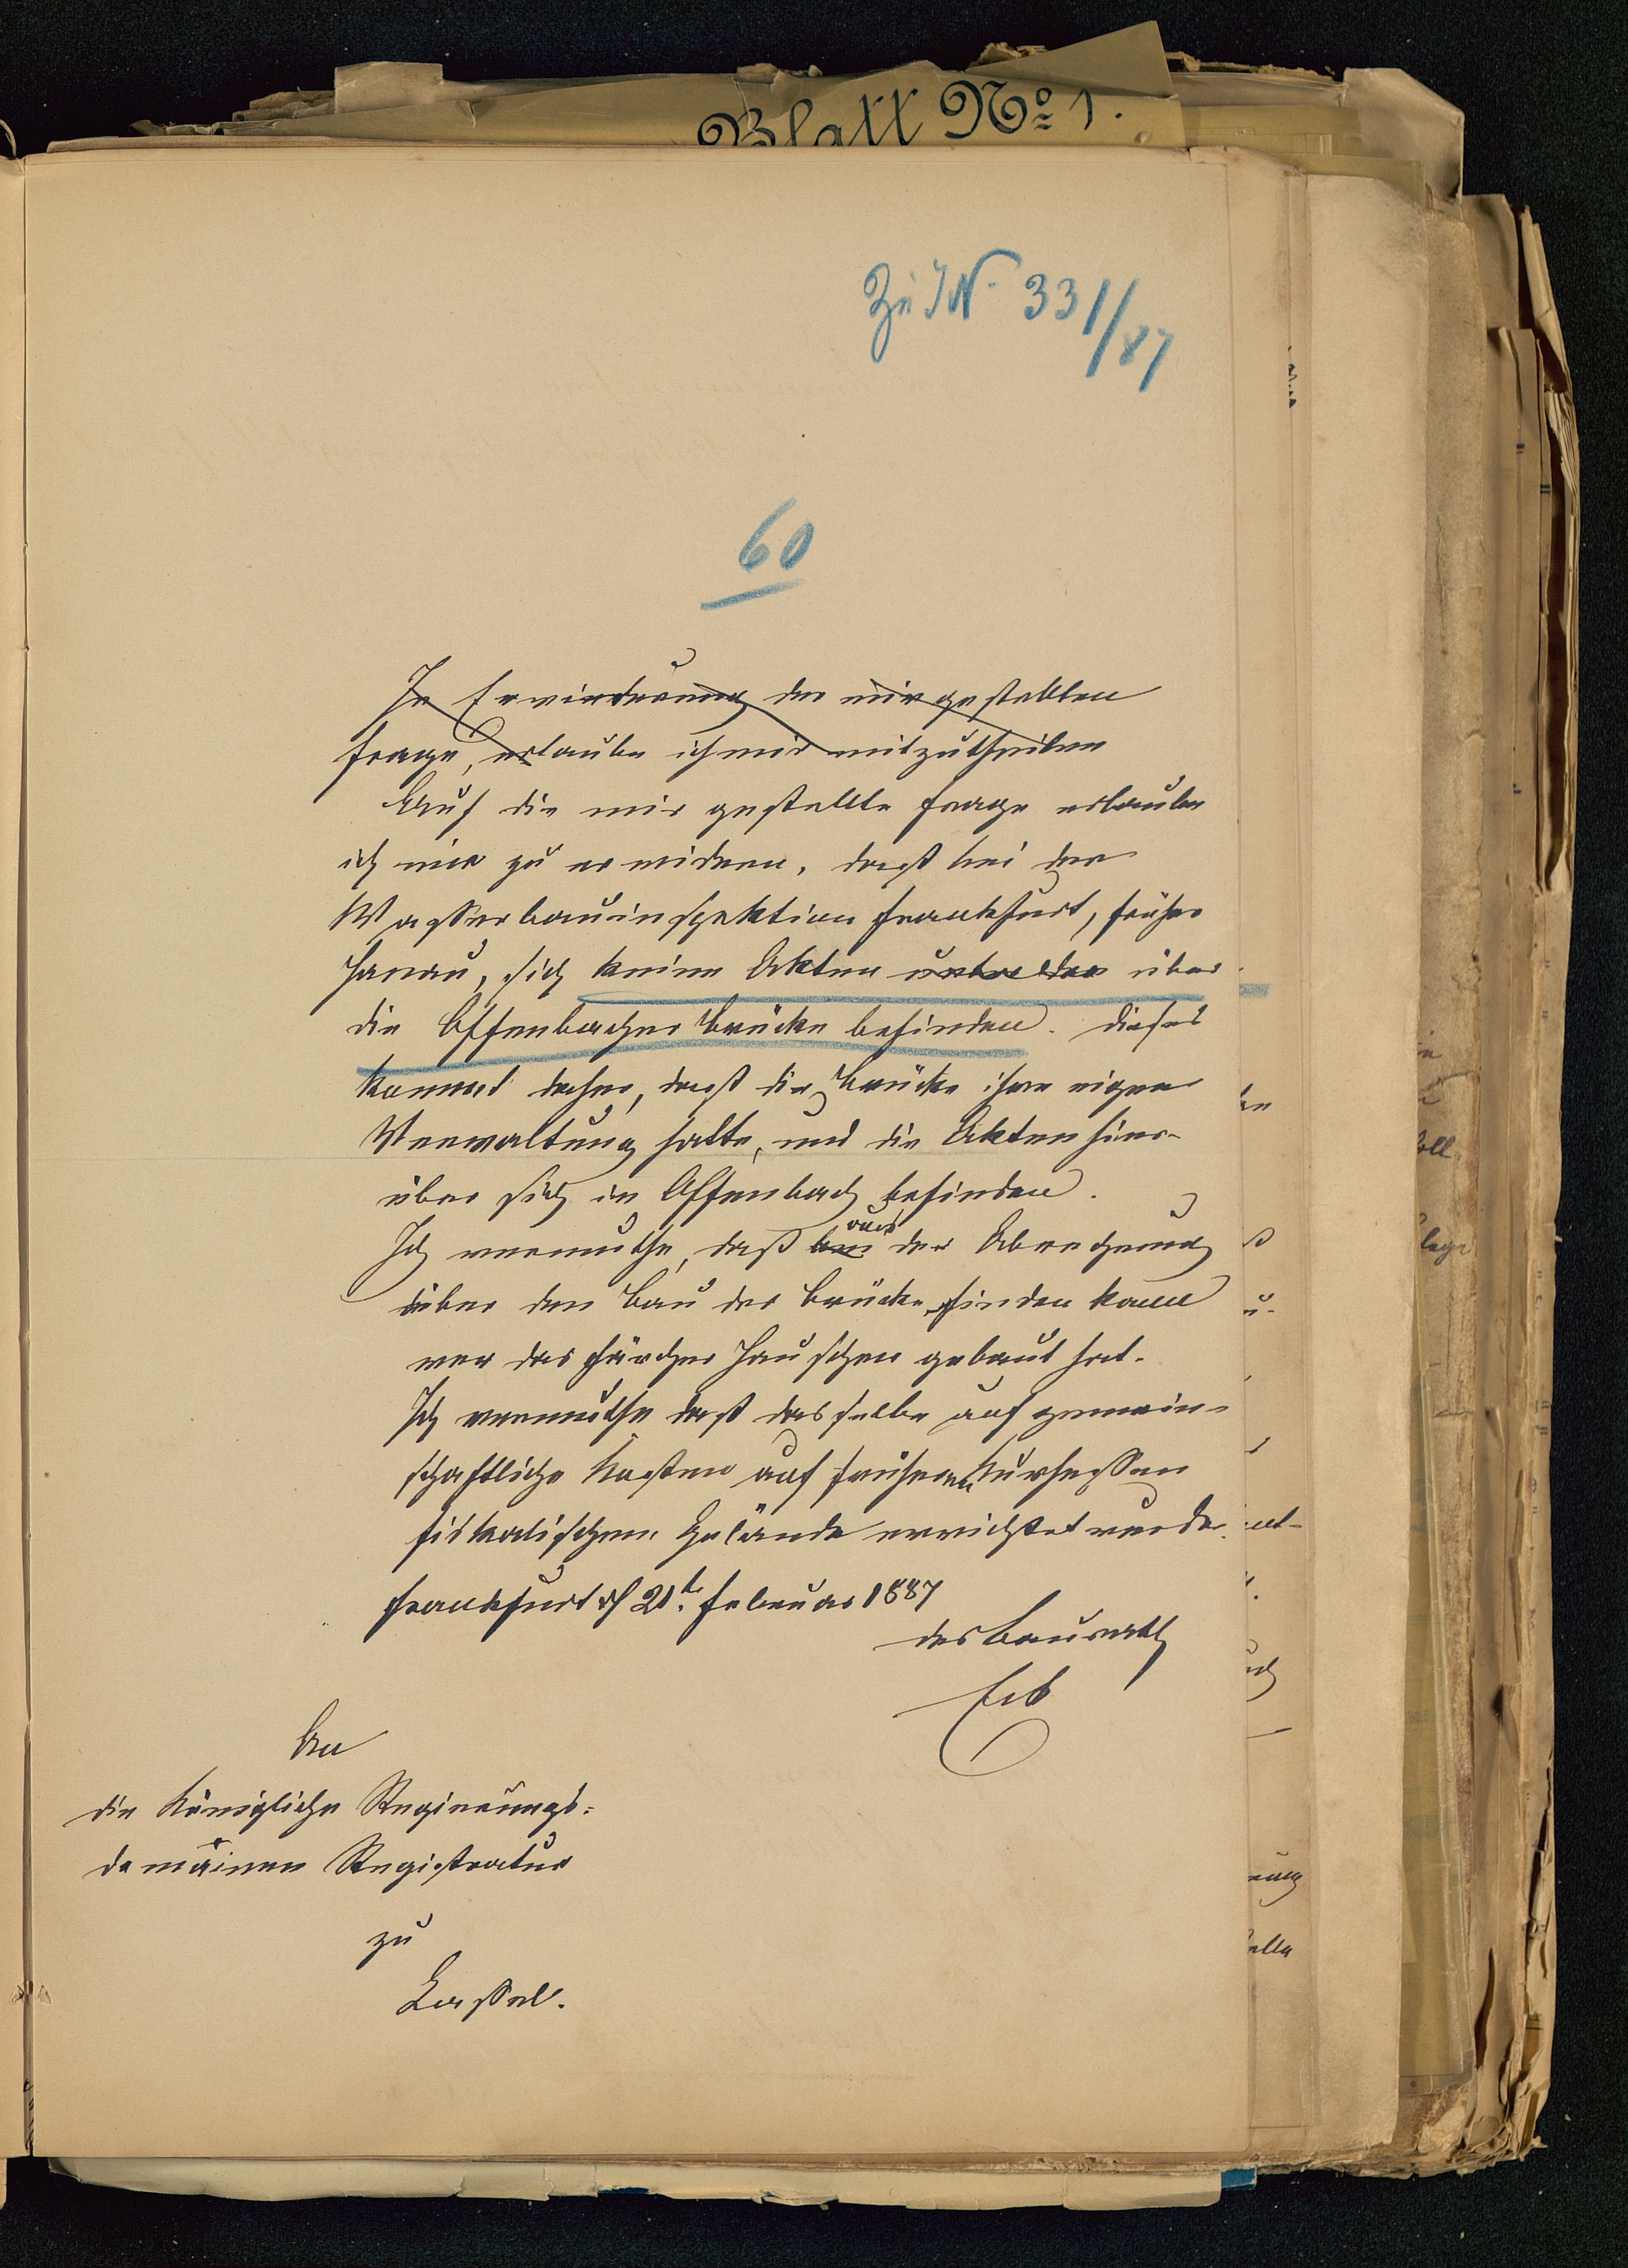 Blatt No 1.
Zu J N. 331/87
60
In Erwiederung der mir gestellten
Frage, erlaube ich mir mitzutheilen
Auf die mir gestellte Frage erlaube
ich mir zu erwidern, daß bei der
Wasserbauinspektion Frankfurt, früher
Hanau, sich keine Akten unter der über
die Offenbacher Brücke befinden. Dieses
kommt daher, daß die Brücke ihre eigene
Verwaltung hatte, und die Akten hier-
über sich in Offenbach befinden.
Ich vermuthe, daß bei aus der Abrechnung
über den Bau der Brücke finden kann
wer das Häuschen gebaut hat.
Ich vermuthe daß dasselbe auf gemein-
schaftliche Kosten auf früheren Kurhessen
fiskalischem Gelände errichtet wurde.
Frankfurt d 21t. Februar 1887
der Baurath
Erb
An
die Königliche Regierungs-
domainen Registratur
zu
Cassel.